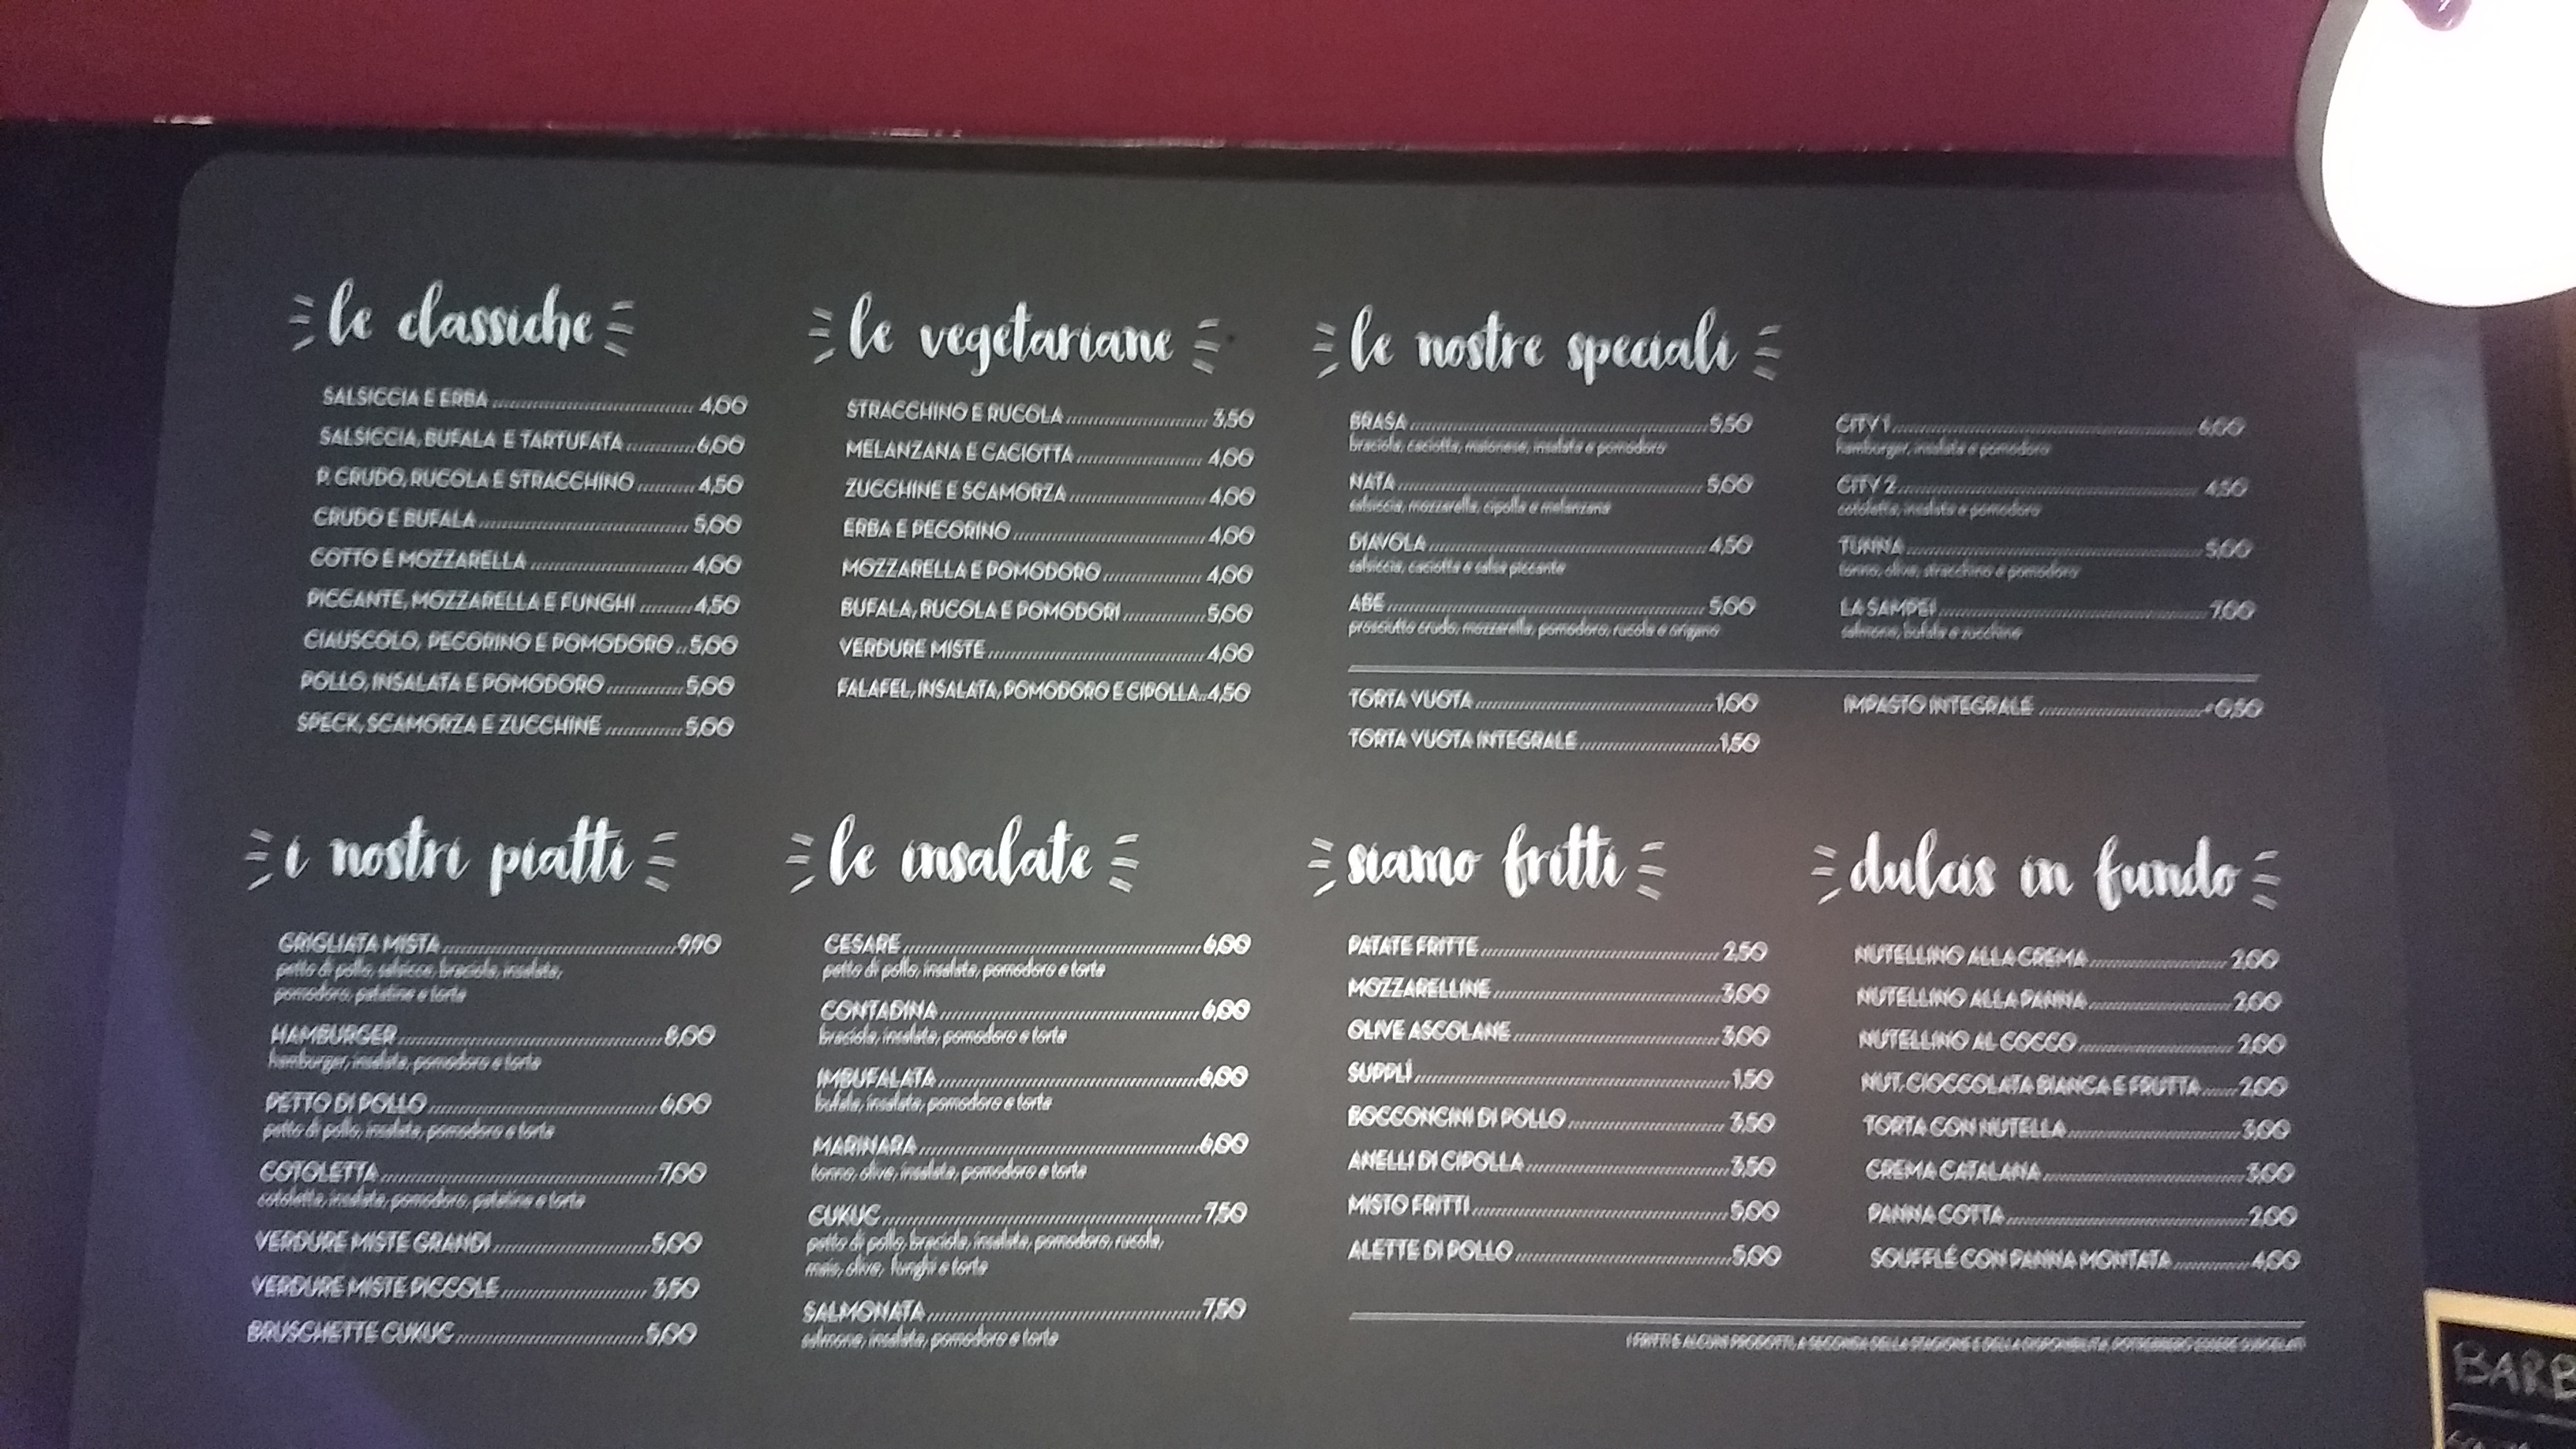 le classiche
SALSICCIA E ERBA 4,00
SALSICCIA, BUFALA E TARTUFATA 6,00
P. CRUDO, RUCOLA E STRACCHINO 4,50
CRUDO E BUFALA 5,00
COTTO E MOZZARELLA 4,00
PICCANTE, MOZZARELLA E FUNGHI 4,50
CIAUSCOLO, PECORINO E POMODORO 5,00
POLLO, INSALATA E POMODORO 5,00
SPECK, SCAMORZA E ZUCCHINE 5,00
le vegetariane
STRACCHINO E RUCOLA 3,50
MELANZANA E CACIOTTA 4,00
ZUCCHINE E SCAMORZA 4,00
ERBA E PECORINO 4,00
MOZZARELLA E POMODORO 4,00
BUFALA, RUCOLA E POMODORI 5,00
VERDURE MISTE 4,00
FALAFEL, INSALATA, POMODORO E CIPOLLA 4,50
le nostre speciali
BRASA 5,50
braciola, caciotta, maionese, insalata e pomodoro
NATA 5,00
salsiccia, mozzarella, cipolla e melanzana
DIAVOLA 4,50
salsiccia, caciotta e salsa piccante
ABE 5,00
prosciutto crudo, mozzarella, pomodoro, rucola e origano
CITY 1 6,00
hamburger, insalata e pomodoro
CITY 2 4,50
cotoletta, insalata e pomodoro
TUNNA 5,00
tonno, olive, stracchino e pomodoro
LA SAMPEI 7,00
salmone, bufala e zucchine
TORTA VUOTA 1,00
TORTA VUOTA INTEGRALE 1,50
IMPASTO INTEGRALE +0,50
i nostri piatti
GRIGLIATA MISTA 9,90
petto di pollo, salsicce, braciola, insalata,
pomodoro, patatine e torta
HAMBURGER 8,00
hamburger, insalata, pomodoro e torta
PETTO DI POLLO 6,00
petto di pollo, insalata, pomodoro e torta
COTOLETTA 7,00
cotoletta, insalata, pomodoro, patatine e torta
VERDURE MISTE GRANDI 5,00
VERDURE MISTE PICCOLE 3,50
BRUSCHETTE CUKUC 5,00
le insalate
CESARE 6,00
petto di pollo, insalata, pomodoro e torta
CONTADINA 6,00
braciola, insalata, pomodoro e torta
IMBUFALATA 6,00
bufala, insalata, pomodoro e torta
MARINARA 6,00
tonno, olive, insalata, pomodoro e torta
CUKUC 7,50
petto di pollo, braciola, insalata, pomodoro, rucola,
mais, olive, funghi e torta
SALMONATA 7,50
salmone, insalata, pomodoro e torta
siamo fritti
PATATE FRITTE 2,50
MOZZARELLINE 3,00
OLIVE ASCOLANE 3,00
SUPPLÌ 1,50
BOCCONCINI DI POLLO 3,50
ANELLI DI CIPOLLA 3,50
MISTO FRITTI 5,00
ALETTE DI POLLO 5,00
dulcis in fundo
NUTELLINO ALLA CREMA 2,00
NUTELLINO ALLA PANNA 2,00
NUTELLINO AL COCCO 2,00
NUT. CIOCCOLATA BIANCA E FRUTTA 2,00
TORTA CON NUTELLA 3,00
CREMA CATALANA 3,00
PANNA COTTA 2,00
SOUFFLÉ CON PANNA MONTATA 4,00
I FRITTI E ALCUNI PRODOTTI, A SECONDA DELLA STAGIONE E DELLA DISPONIBILITÀ, POTREBBERO ESSERE SURGELATI
BARB